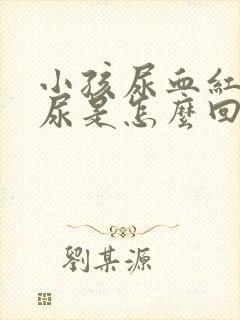 小孩尿血紅
尿是怎麼回
劉某源